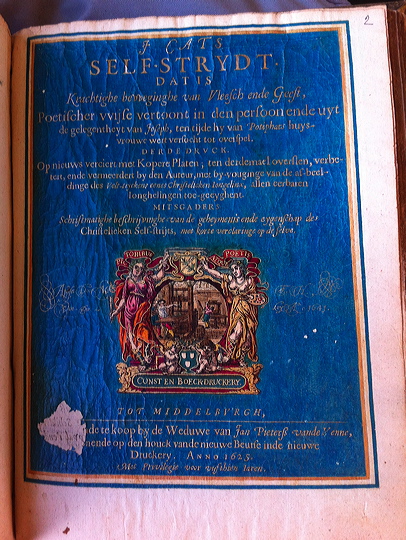 2
J CATS
SELF-STRYDT.
DAT IS
Krachtighe beweginghe van Vleesch ende Geest,
Poetischer wijse vertoont in den persoon ende uyt
de gelegentheyt van Joseph, ten tijde hy van Potiphars huys-
vrouwe wert versocht tot overspel.
DERDE DRUCK.
Op nieuws verciert met Kopere Platen, ten derdemael oversien, verbe-
tert, ende vermeerdert by den Auteur, met by-vouginge van de af-beel-
dinge des
allen eerbaren
Jonghelingen toe-geeyghent.
MITSGADERS
Schrifmatighe beschrijvinghe van de gheymenis ende eygenschap des
Christelicken Self-strijts, met korte verclaringe op de selve.
PICTORIBUS
POETIS
CUNST EN BOECK-DRUCKERY.
TOT MIDDELBURGH,
de te koop by de Weduwe van Jan Pieterss vande Venne,
nende op den houck vande nieuwe Beurse inde nieuwe
Druckery, ANNO 1625.
Met Privilegie voor
Iaren.